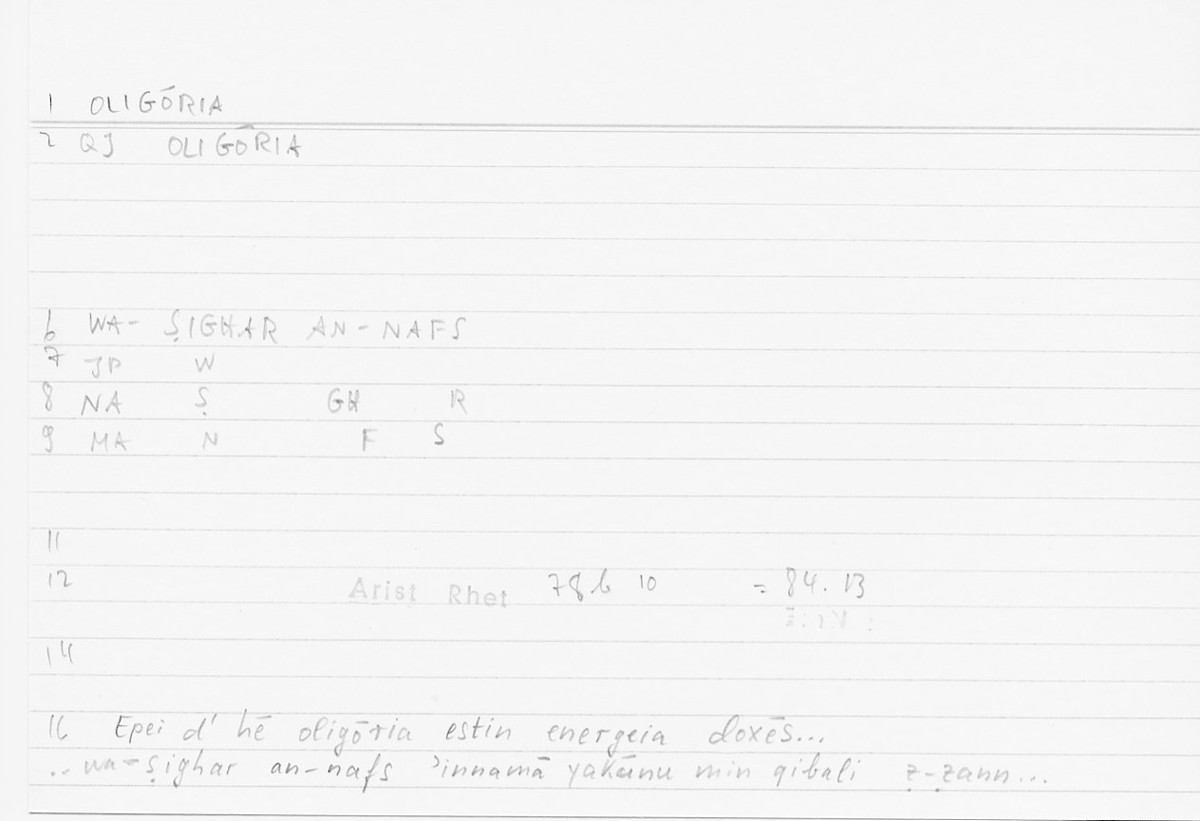 1 OLIGŌRIA
2 QJ OLIGŌRIA
6 WA- ṢIGHAR AN-NAFS
7 JP W
8 NA Ṣ GH R
9 MA N F S
11
12 Arist Rhet 78b 10 = 84.13
14
16 Epei d' hē oligōria estin energeia doxēs...
.. wa-ṣighar an-nafs ʾinnamā yakūnu min qibali ẓ-ẓann...